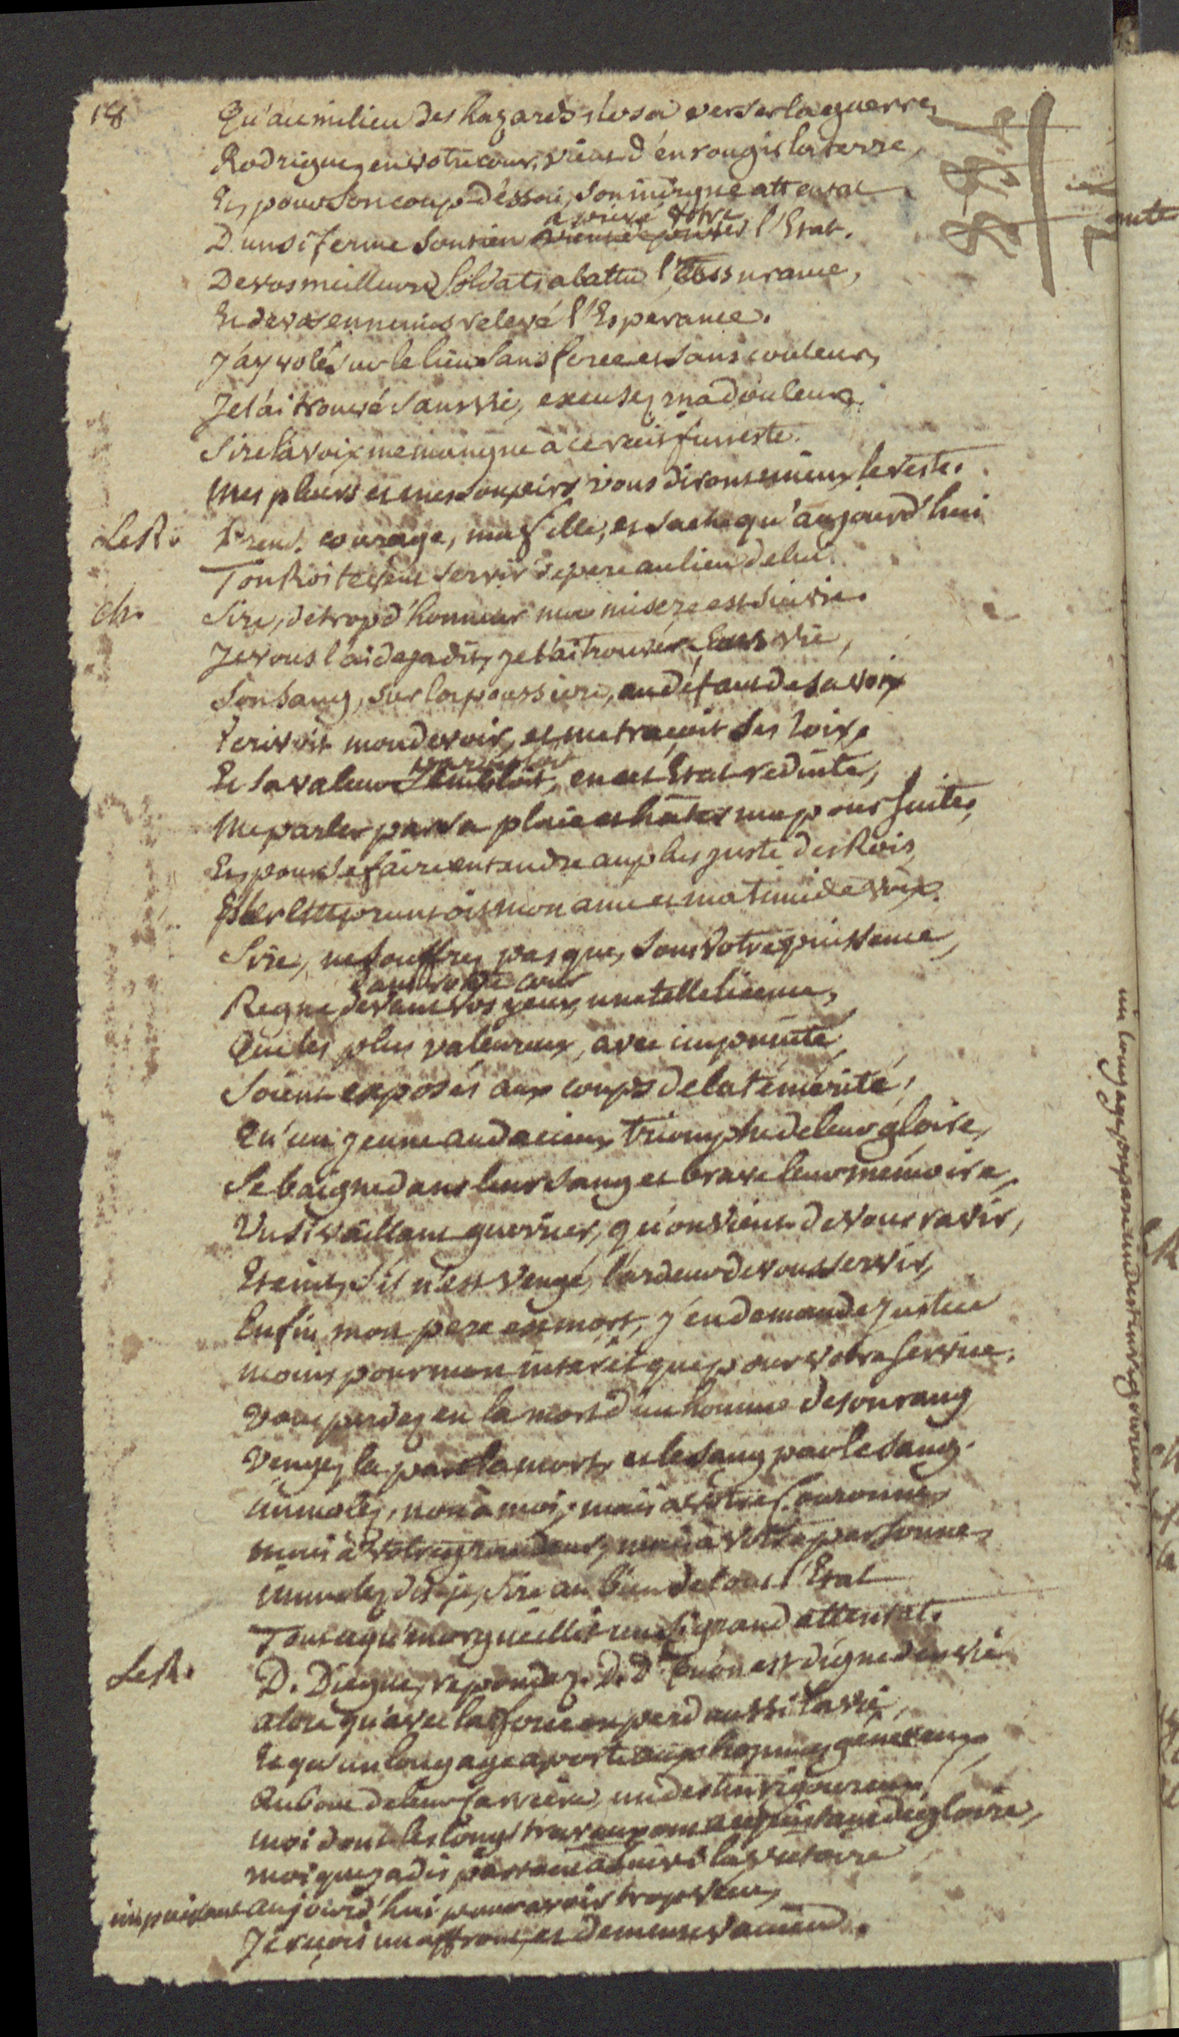 18
Qu'au milieu des hazards n'osa verser la guerre,
Rodrigue, en votre cour, vient d'en rougir la terre,
Et, pour son coup d'essai, son indigne attentat
a privé votre
D'un si ferme soutien l'Etat.
De vos meilleurs soldats abattu l'assurance,
Et de vos ennemis relevé l'Esperance.
J'ay volé sur le lieu sans force et sans couleur,
Je l'ai trouvé sans vie, excusez ma douleur.
Sire la voix me manque à ce recit funeste.
Mes pleurs et mes soupirs vous diront mieux le reste.
Le R. Prend courage, ma fille, et sache qu'aujourd'hui
Ton Roi te veut servir de pere au lieu de lui.
Ch. Sire, de trop d'honneur ma misere est suivie.
Je vous l'ai deja dit, je l'ai trouvé sans vie,
Son sang, sur la poussiere, au défaut de sa voix
Ecrivoit mon devoir, et me traçoit ses loix.
Et sa valeur sembloit, en cet Etat reduite,
Me parler par sa plaie et hâter ma poursuite,
Et, pour se faire entendre au plus juste des Rois
empruntoit mon ame et ma timide voix.
Sire, ne souffrez pas que, sous votre puissance,
dans votre cour
Regne devant vos yeux, une telle licence,
Que les plus valeureux, avec impunité,
Soient exposés aux coups de la témérité,
Qu'un jeune audacieux triomphe de leur gloire,
Se baigne dans leur sang et brave leur mémoire,
Un si vaillant guerrier, qu'on vient de vous ravir,
Eteint, s'il n'est vengé, l'ardeur de vous servir,
Enfin mon pere est mort, j'en demande justice
moins pour mon interêt que pour votre service.
Vous perdez en la mort d'un homme de son rang
Vengez la par la mort, et le sang par le sang.
immolez, non à moi, mais à votre Couronne,
mais à votre grandeur, mais à votre personne,
immolez dis-je, Sire au bien de tout l'Etat
Tout ce qu'enorgueillit un si grand attentat.
Le R. D. Diegue, repondez. D. D. Qu'on est digne d'envie
alors qu'avec la force on perd aussi la vie,
Et qu'un long age aporte aux hommes généreux,
Au bout de leur carriere, un destin rigoureux
moi dont les longs travaux ont acquis tant de gloire,
moi que jadis partout a suivi la victoire
impuissant aujourd'hui pour avoir trop vecu,
Je reçois un affront, et demeure vaincu.
un long age prepare un destin rigoureux